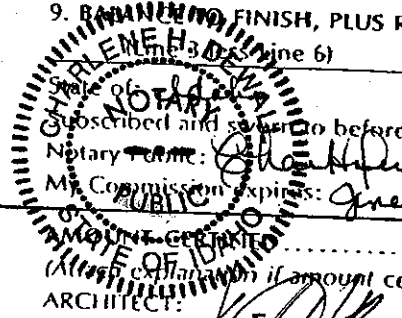 9. BALANCE TO FINISH, PLUS R
(Line 3 less Line 6)
State of: Idaho
Subscribed and sworn to before
Notary Public:
My Commission Expires: June
AMOUNT CERTIFIED
(Attach explanation if amount ce
ARCHITECT:
CHARLENE H. DEWAL
NOTARY
PUBLIC
STATE OF IDAHO